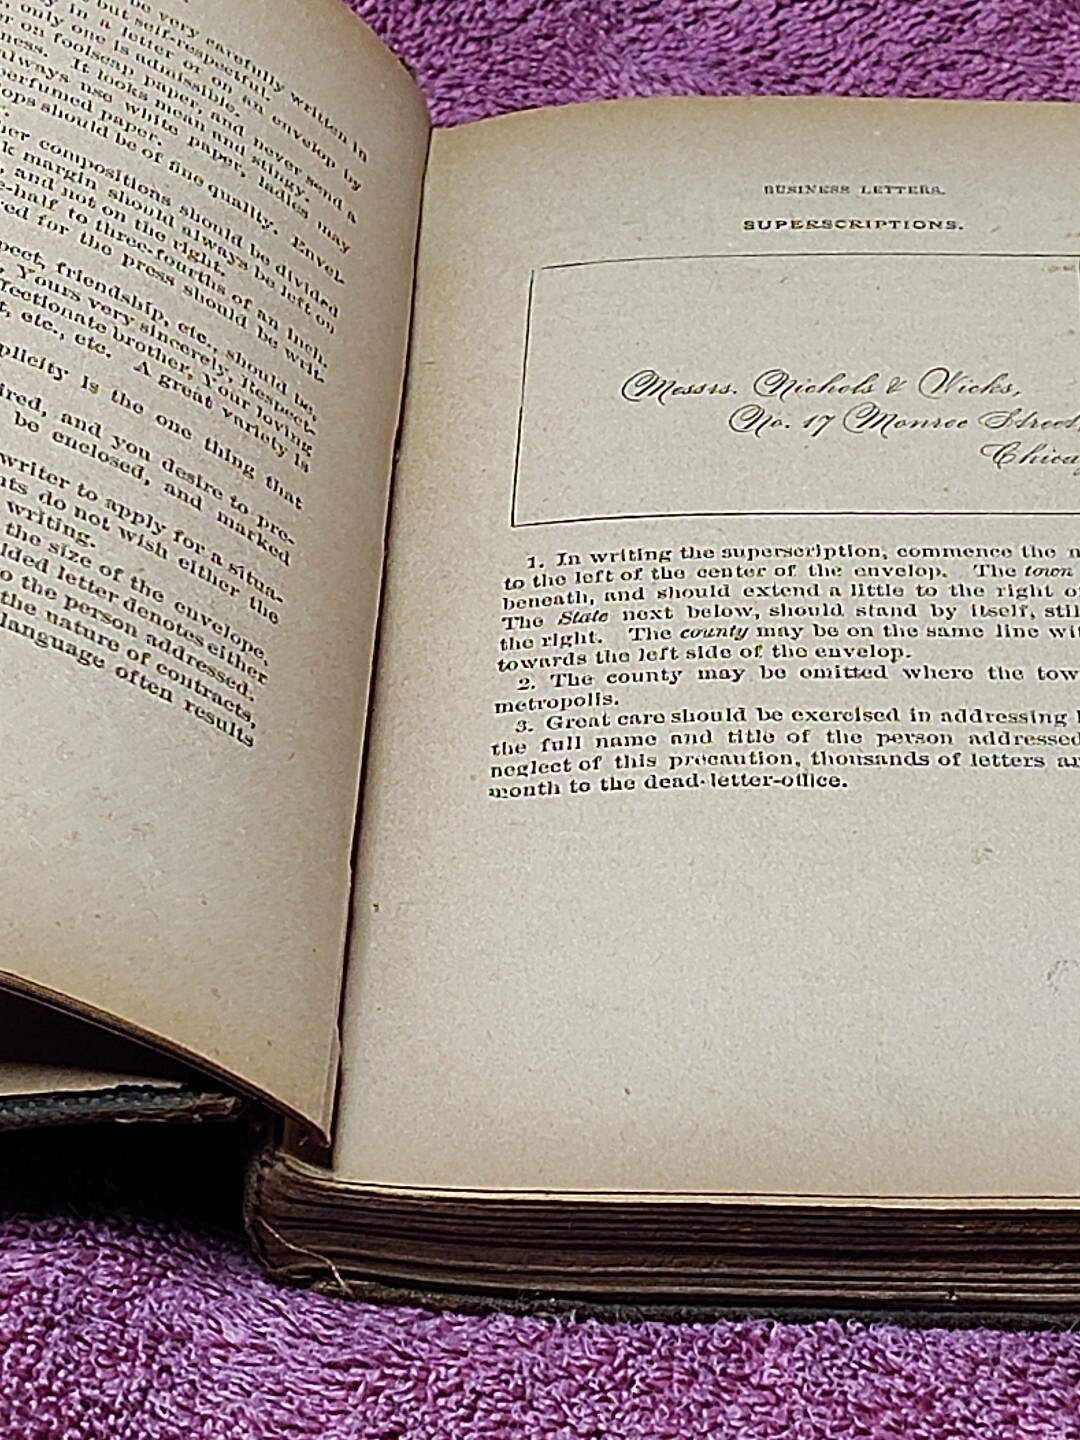 be very carefully written in
but self-respectful.
in a letter or on an envelop by
only one is admissible.
on foolscap paper, and never send a
ness. It looks mean and stingy.
always use white paper, ladies may
perfumed paper.
ops should be of fine quality. Envel-
her compositions should be divided
k margin should always be left on
and not on the right.
e-half to three-fourths of an inch.
red for the press should be writ-
pect, friendship, etc., should be,
Yours very sincerely, Respect-
fectionate brother, Your loving
t, etc., etc. A great variety is
plicity is the one thing that
ired, and you desire to pre-
be enclosed, and marked
writer to apply for a situa-
nts do not wish either the
writing.
the size of the envelope,
lded letter denotes either
o the person addressed.
the nature of contracts,
language often results
BUSINESS LETTERS.
SUPERSCRIPTIONS.
Messrs. Nichols & Wicks,
No. 17 Monroe Street,
Chicag
1. In writing the superscription, commence the n
to the left of the center of the envelop. The town
beneath, and should extend a little to the right o
The State next below, should stand by itself, stil
the right. The county may be on the same line wit
towards the left side of the envelop.
2. The county may be omitted where the tow
metropolis.
3. Great care should be exercised in addressing
the full name and title of the person addressed
neglect of this precaution, thousands of letters ar
month to the dead-letter-office.